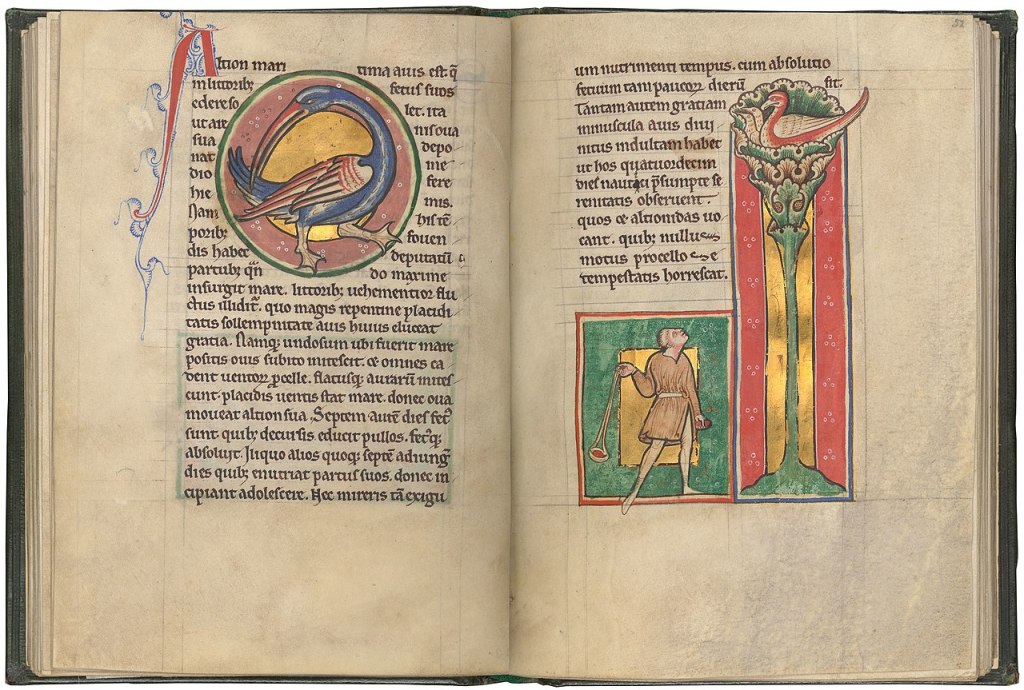 Altion mari tima auis est. q̄
in littorib; fetus suos
edere so let. ita
ut are nis oua
sua depo
nat me
dio fere
hie mis.
Nam his tē
porib; fouen
dis habet deputatū
partub; qn̄ do maxime
insurgit mare. littorib; uehementior flu
ctus illidit᷑. quo magis repentine placidi
tatis sollempnitate auis huius eluceat
gratia. Namq; undosum ubi fuerit mare
positis ouis subito mitescit. ⁊ce omnes ca
dent uentoꝝ ꝓcelle. flatusq; aurarū mites
cunt. placidis uentis stat mare. donec oua
moueat altion sua. Septem autē dies fet᷑
sunt quib; decursis educit pullos. fet᷑q;
absoluit. Iliquo alios quoq; septē adiung᷑
dies quib; enutriat partus suos. donec in
cipiant adolescere. Nec mireris tā exigu
52
um nutrimenti tempus. cum absolutio
fetuum tam paucoꝝ dierū sit.
Tantam autem gratiam
minuscula auis diui
nitus indultam habet
ut hos quatuordecim
dies nautici p̄sumpte se
renitatis obseruent.
quos ce altionidas uo
cant. quib; nullus
motus procellose
tempestatis horrescat.